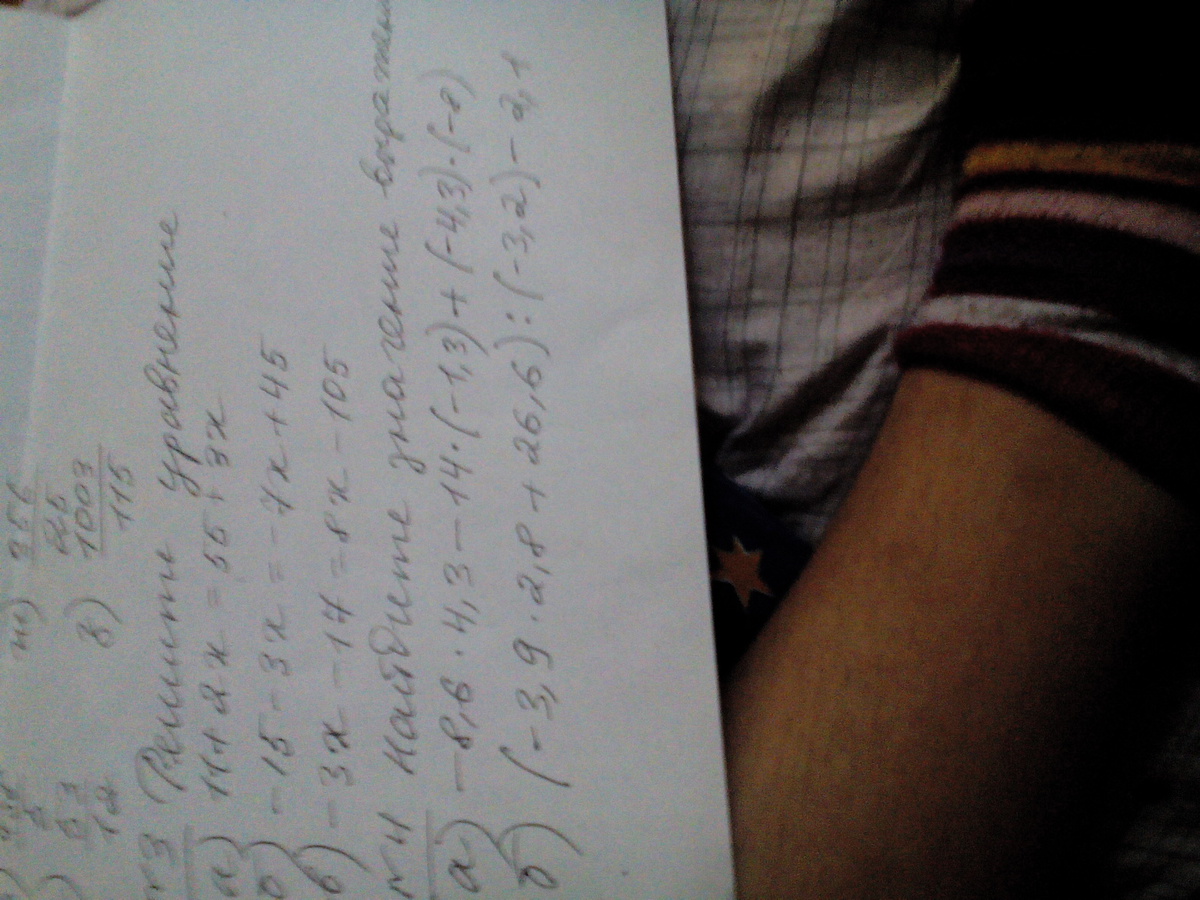 ж) 256
25
з) 1003
115
№3 Решить уравнение
а) 11 + 2х = 55 + 3х
б) -15 - 3х = -7х + 45
в) -3х - 17 = 8х - 105
№4 Найдите значение выражени
а) -8,6 · 4,3 - 14 · (-1,3) + (-4,3) · (-8)
б) (-3,9 · 2,8 + 26,6) : (-3,2) - 2,1